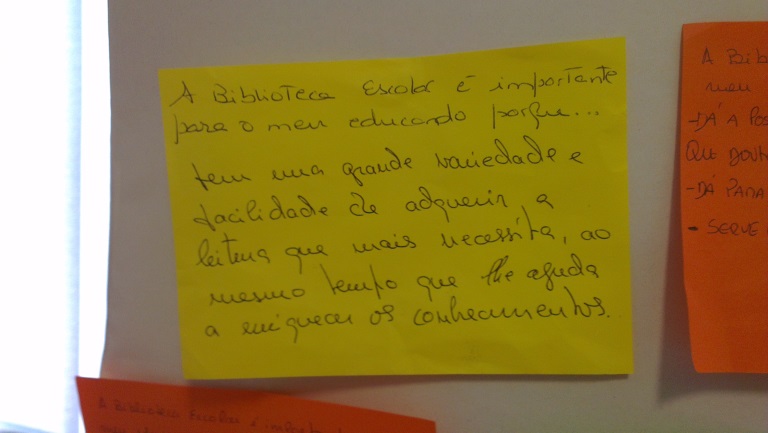 A Biblioteca Escolar é importante
para o meu educando porque...
tem uma grande variedade e
facilidade de adquerir a
leitura que mais necessita, ao
mesmo tempo que lhe ajuda
a enriquecer os conhecimentos.
A Bib
meu
-DÁ A POS
QUE
-DÁ PARA
- SERVE
A Biblioteca Escolar é
meu